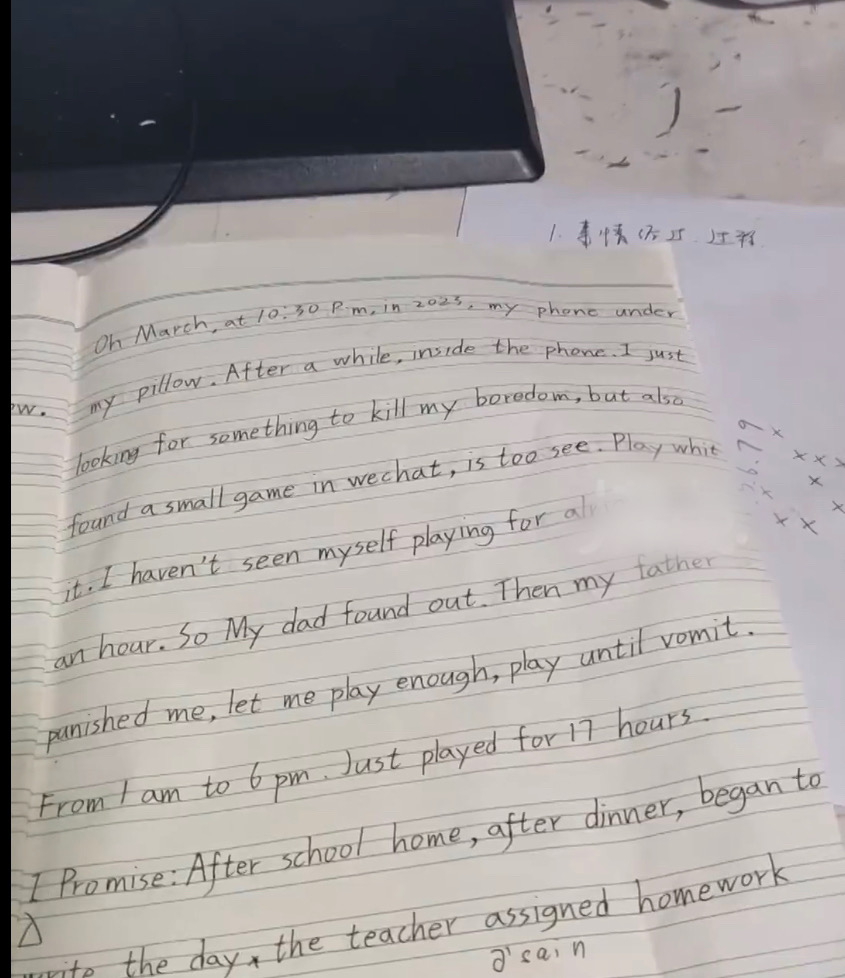 1. 事情经过.过程
Oh March, at 10:30 P.m, in 2023, my phone under
my pillow. After a while, inside the phone. I just
ew.
looking for something to kill my boredom, but also
found a small game in wechat, is too see. Play whit
it. I haven't seen myself playing for
an hour. So My dad found out. Then my father
punished me, let me play enough, play until vomit.
From 1 am to 6 pm. Just played for 17 hours.
I Promise: After school home, after dinner, began to
write the day, the teacher assigned homework
ə'sain